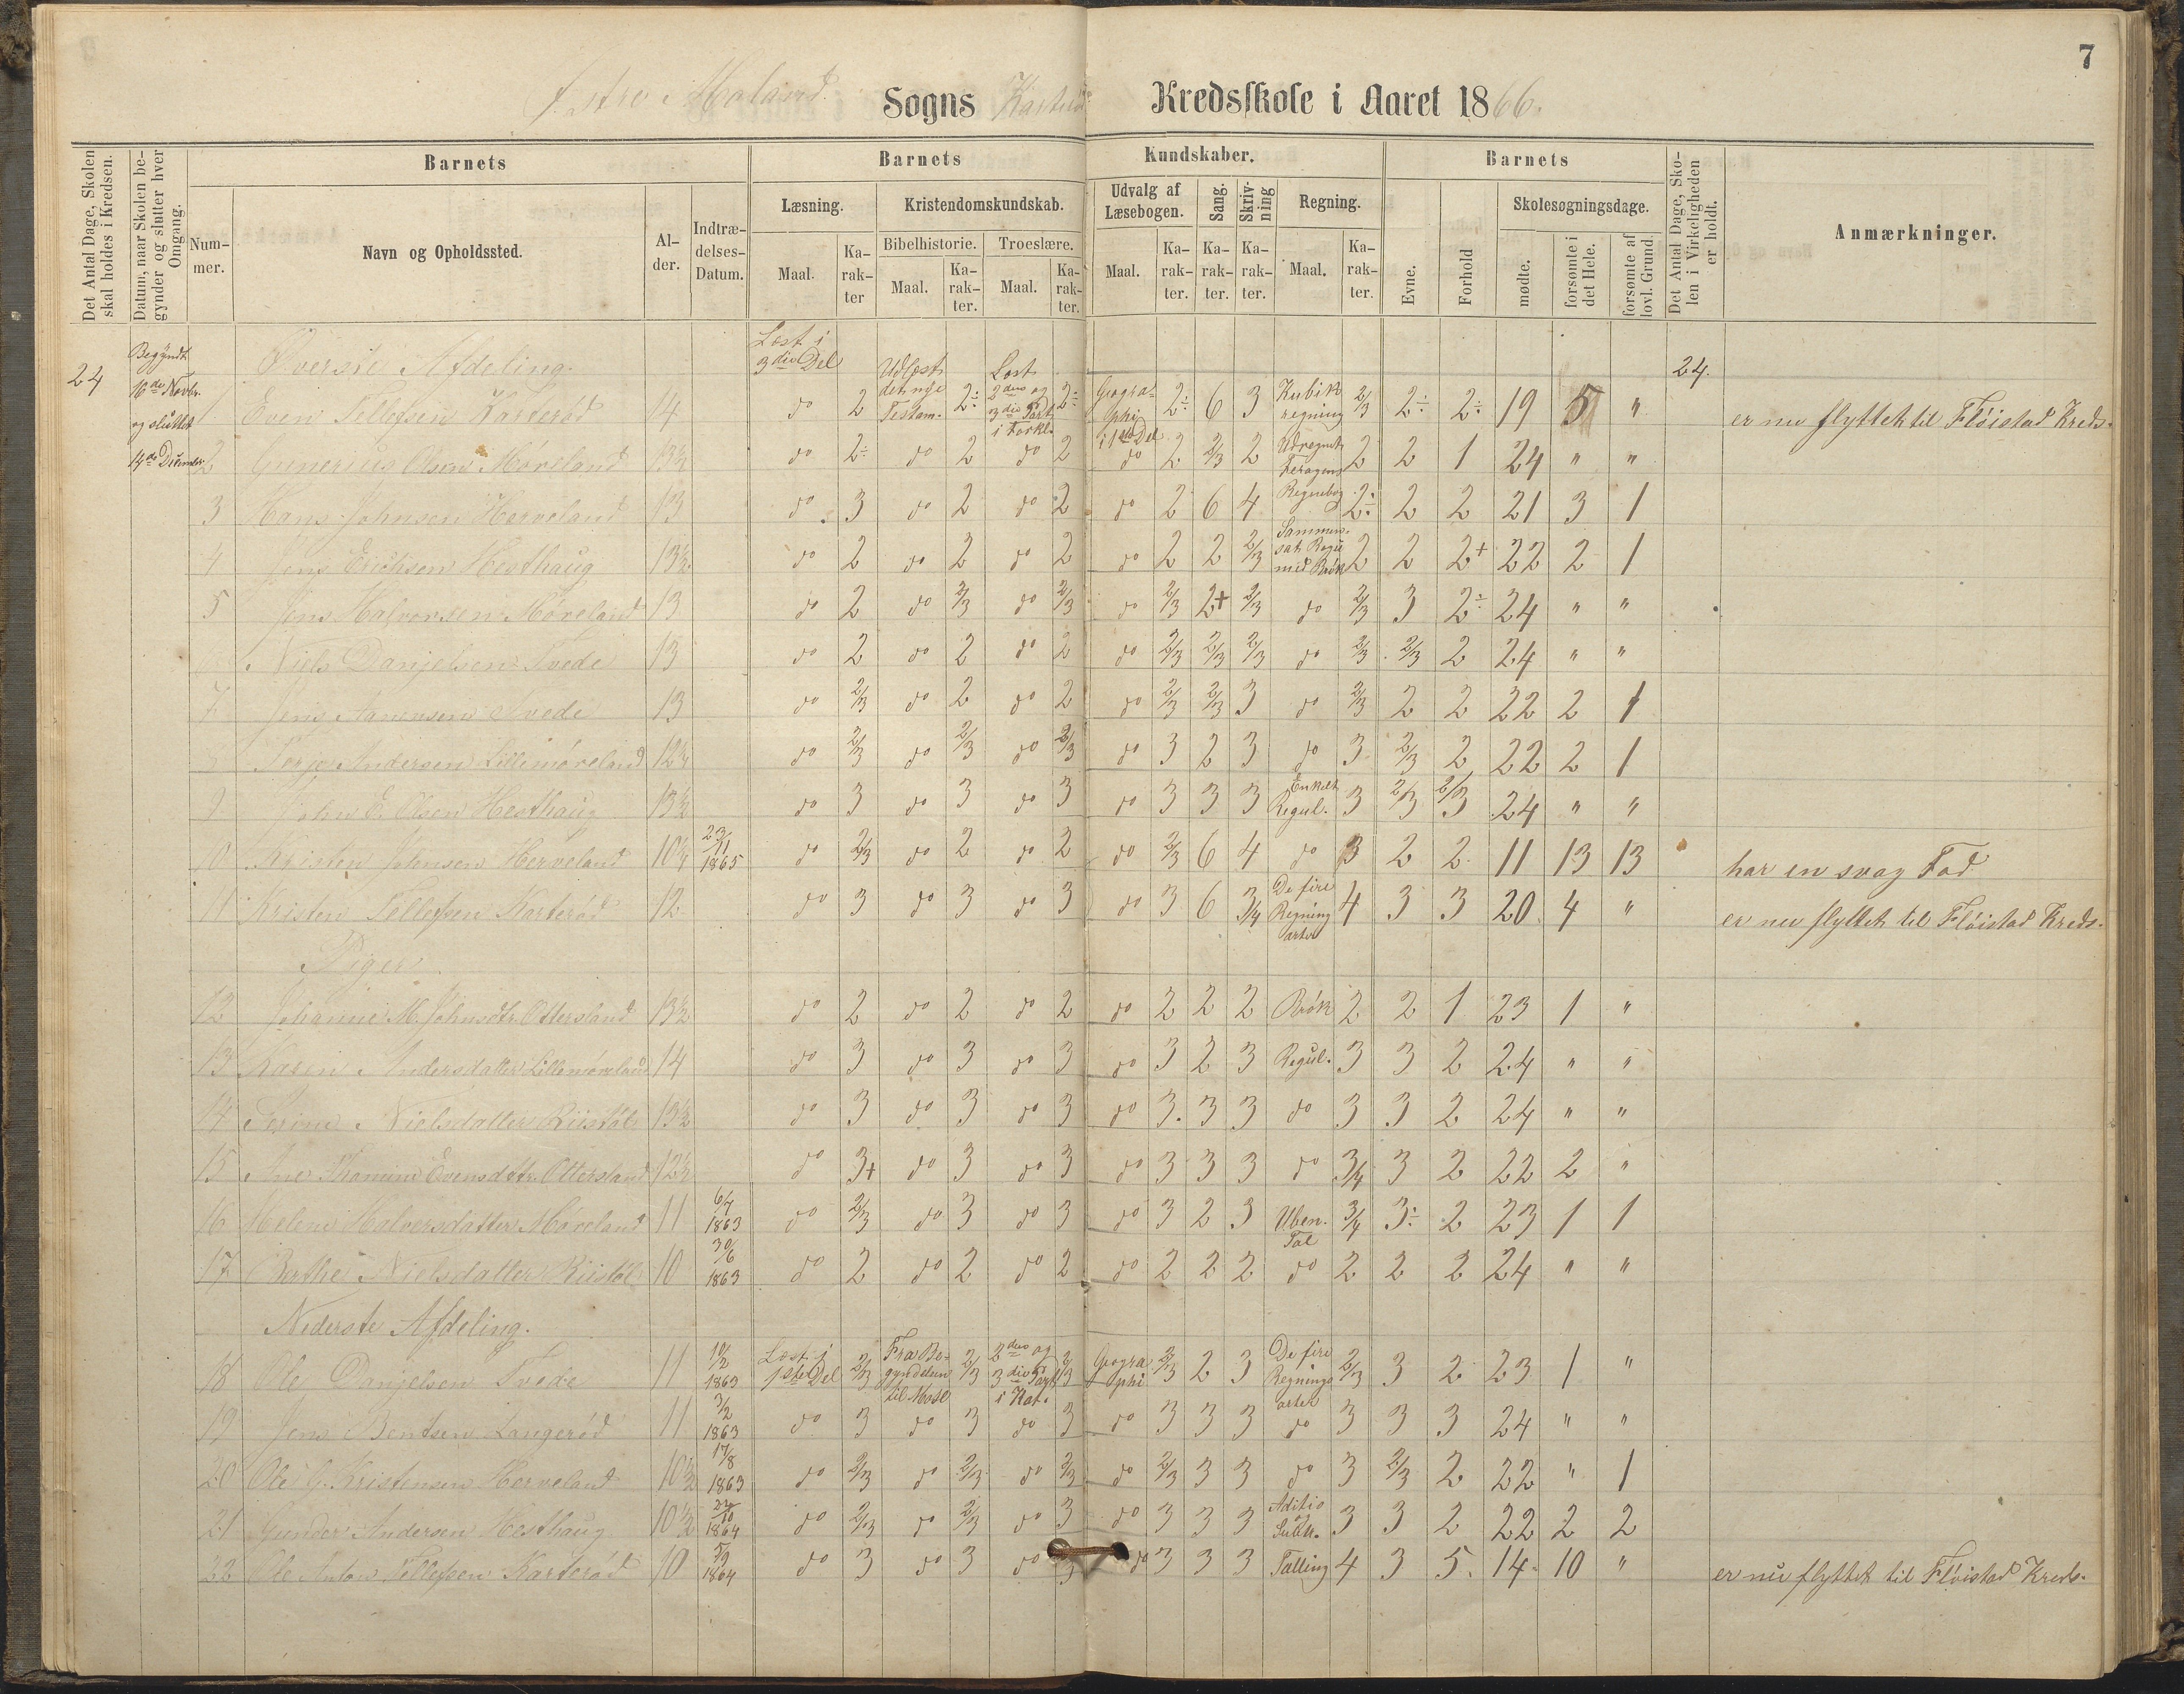 7
Østre Moland Sogns Karterød Kredsskole i Aaret 1866.
Det Antal Dage, Skolen skal holdes i Kredsen.
Datum, naar Skolen begynder og slutter hver Omgang.
Barnets
Nummer.
Navn og Opholdssted.
Alder.
Indtrædelses-Datum.
Barnets Kundskaber.
Læsning.
Maal.
Karakter
Kristendomskundskab.
Bibelhistorie.
Maal.
Karakter.
Troeslære.
Maal.
Karakter.
Udvalg af Læsebogen.
Maal.
Karakter.
Sang.
Karakter.
Skrivning
Karakter.
Regning.
Maal.
Karakter.
Barnets
Evne.
Forhold
Skolesøgningsdage.
mødte.
forsømte i det Hele.
forsømte af lovl. Grund.
Det Antal Dage, Skolen i Virkeligheden er holdt.
Anmærkninger.
24 Begyndt 16de Novbr. og sluttet 14de December
Øverste Afdeling. 24.
1 Even Tellefsen Karterød 14 Læst i 3die Del do 2 Udlæst det nye Testam. 2÷ Læst 2den og 3die Part i Forkl. 2÷ Geographi i 1ste Del 2÷ 6 3 Kubikregning 2/3 2÷ 2÷ 19 5 " er nu flyttet til Fløistad Kreds.
2 Gunerius Olsen Møreland 13½ do 2÷ do 2 do 2 do 2 2/3 2 Udregnet 2 2 1 24 " "
3 Hans Johnsen Herveland 13 do 3 do 2 do 2 do 2 6 4 Regnebog 2÷ 2 2 21 3 1
4 Jens Erichsen Hesthaug 13½ do 2 do 2 do 2 do 2 2 2/3 Sammensat Regu med Brøk 2 2 2+ 22 2 1
5 Jens Halvorsen Møreland 13 do 2 do 2/3 do 2/3 do 2/3 2+ 2/3 do 2/3 3 2÷ 24 " "
6 Niels Danjelsen Tvede 13 do 2 do 2 do 2 do 2/3 2/3 2/3 do 2/3 2/3 2 24 " "
7 Jens Aanensen Tvede 13 do 2/3 do 2 do 2 do 2/3 2/3 3 do 2/3 2 2 22 2 1
8 Terje Andersen Lillemøreland 12¼ do 2/3 do 2/3 do 2/3 do 3 2 3 do 3 2/3 2 22 2 1
9 John E. Olsen Hesthaug 13½ do 3 do 3 do 3 do 3 3 3 Enkelt Regul. 3 2/3 2/3 24 " "
10 Kristen Johnsen Herveland 10¼ 23/11 1865 do 2/3 do 2 do 2 do 2/3 6 4 do 3 2 2 11 13 13 har en svag Fod
11 Kristen Tellefsen Karterød 12 do 3 do 3 do 3 do 3 6 3/4 De fire Regningarter 4 3 3 20 4 " er nu flyttet til Fløistad Kreds.
Piger
12 Johanne M. Johnsdtr. Ottersland 13½ do 2 do 2 do 2 do 2 2 2 Brøk 2 2 1 23 1 "
13 Karen Andersdatter Lillemøreland 14 do 3 do 3 do 3 do 3 2 3 Regul. 3 3 2 24 " "
14 Serine Nielsdatter Riistøl 13½ do 3 do 3 do 3 do 3. 3 3 do 3 3 2 24 " "
15 Ane Thomine Evensdatr. Ottersland 12½ do 3+ do 3 do 3 do 3 3 3 do 3/4 3 2 22 2 "
16 Helene Halvorsdatter Møreland 11 6/7 1863 do 2/3 do 3 do 3 do 3 2 3 Uben. Tal 3/4 3÷ 2 23 1 1
17 Berthe Nielsdatter Riistøl 10 30/6 1863 do 2 do 2 do 2 do 2 2 2 do 2 2 2 24 " "
Nederste Afdeling.
18 Ole Danjelsen Tvede 11 10/2 1863 Læst i 1ste Del 2/3 Fra Begyndelsen til Mose 2/3 2den og 3die Part i Kat. 2/3 Geographi 2/3 2 3 De fire Regningsarter 2/3 3 2 23 1 "
19 Jens Bentsen Langerød 11 3/2 1863 do 3 do 3 do 3 do 3 3 3 do 3 3 3 24 " "
20 Ole G. Kristensen Herveland 10½ 17/8 1863 do 2/3 do 2/3 do 2/3 do 2/3 3 3 do 3 2/3 2 22 " 1
21 Gunder Andersen Hesthaug 10½ 24/10 1864 do 2/3 do 2/3 do 3 do 3 3 3 Aditio og Subtr. 3 3 2 22 2 2
22 Ole Anton Tellefsen Karterød 10 5/9 1864 do 3 do 3 do 3 do 3 3 3 Talling 4 3 5. 14. 10 " er nu flyttet til Fløistad Kreds.